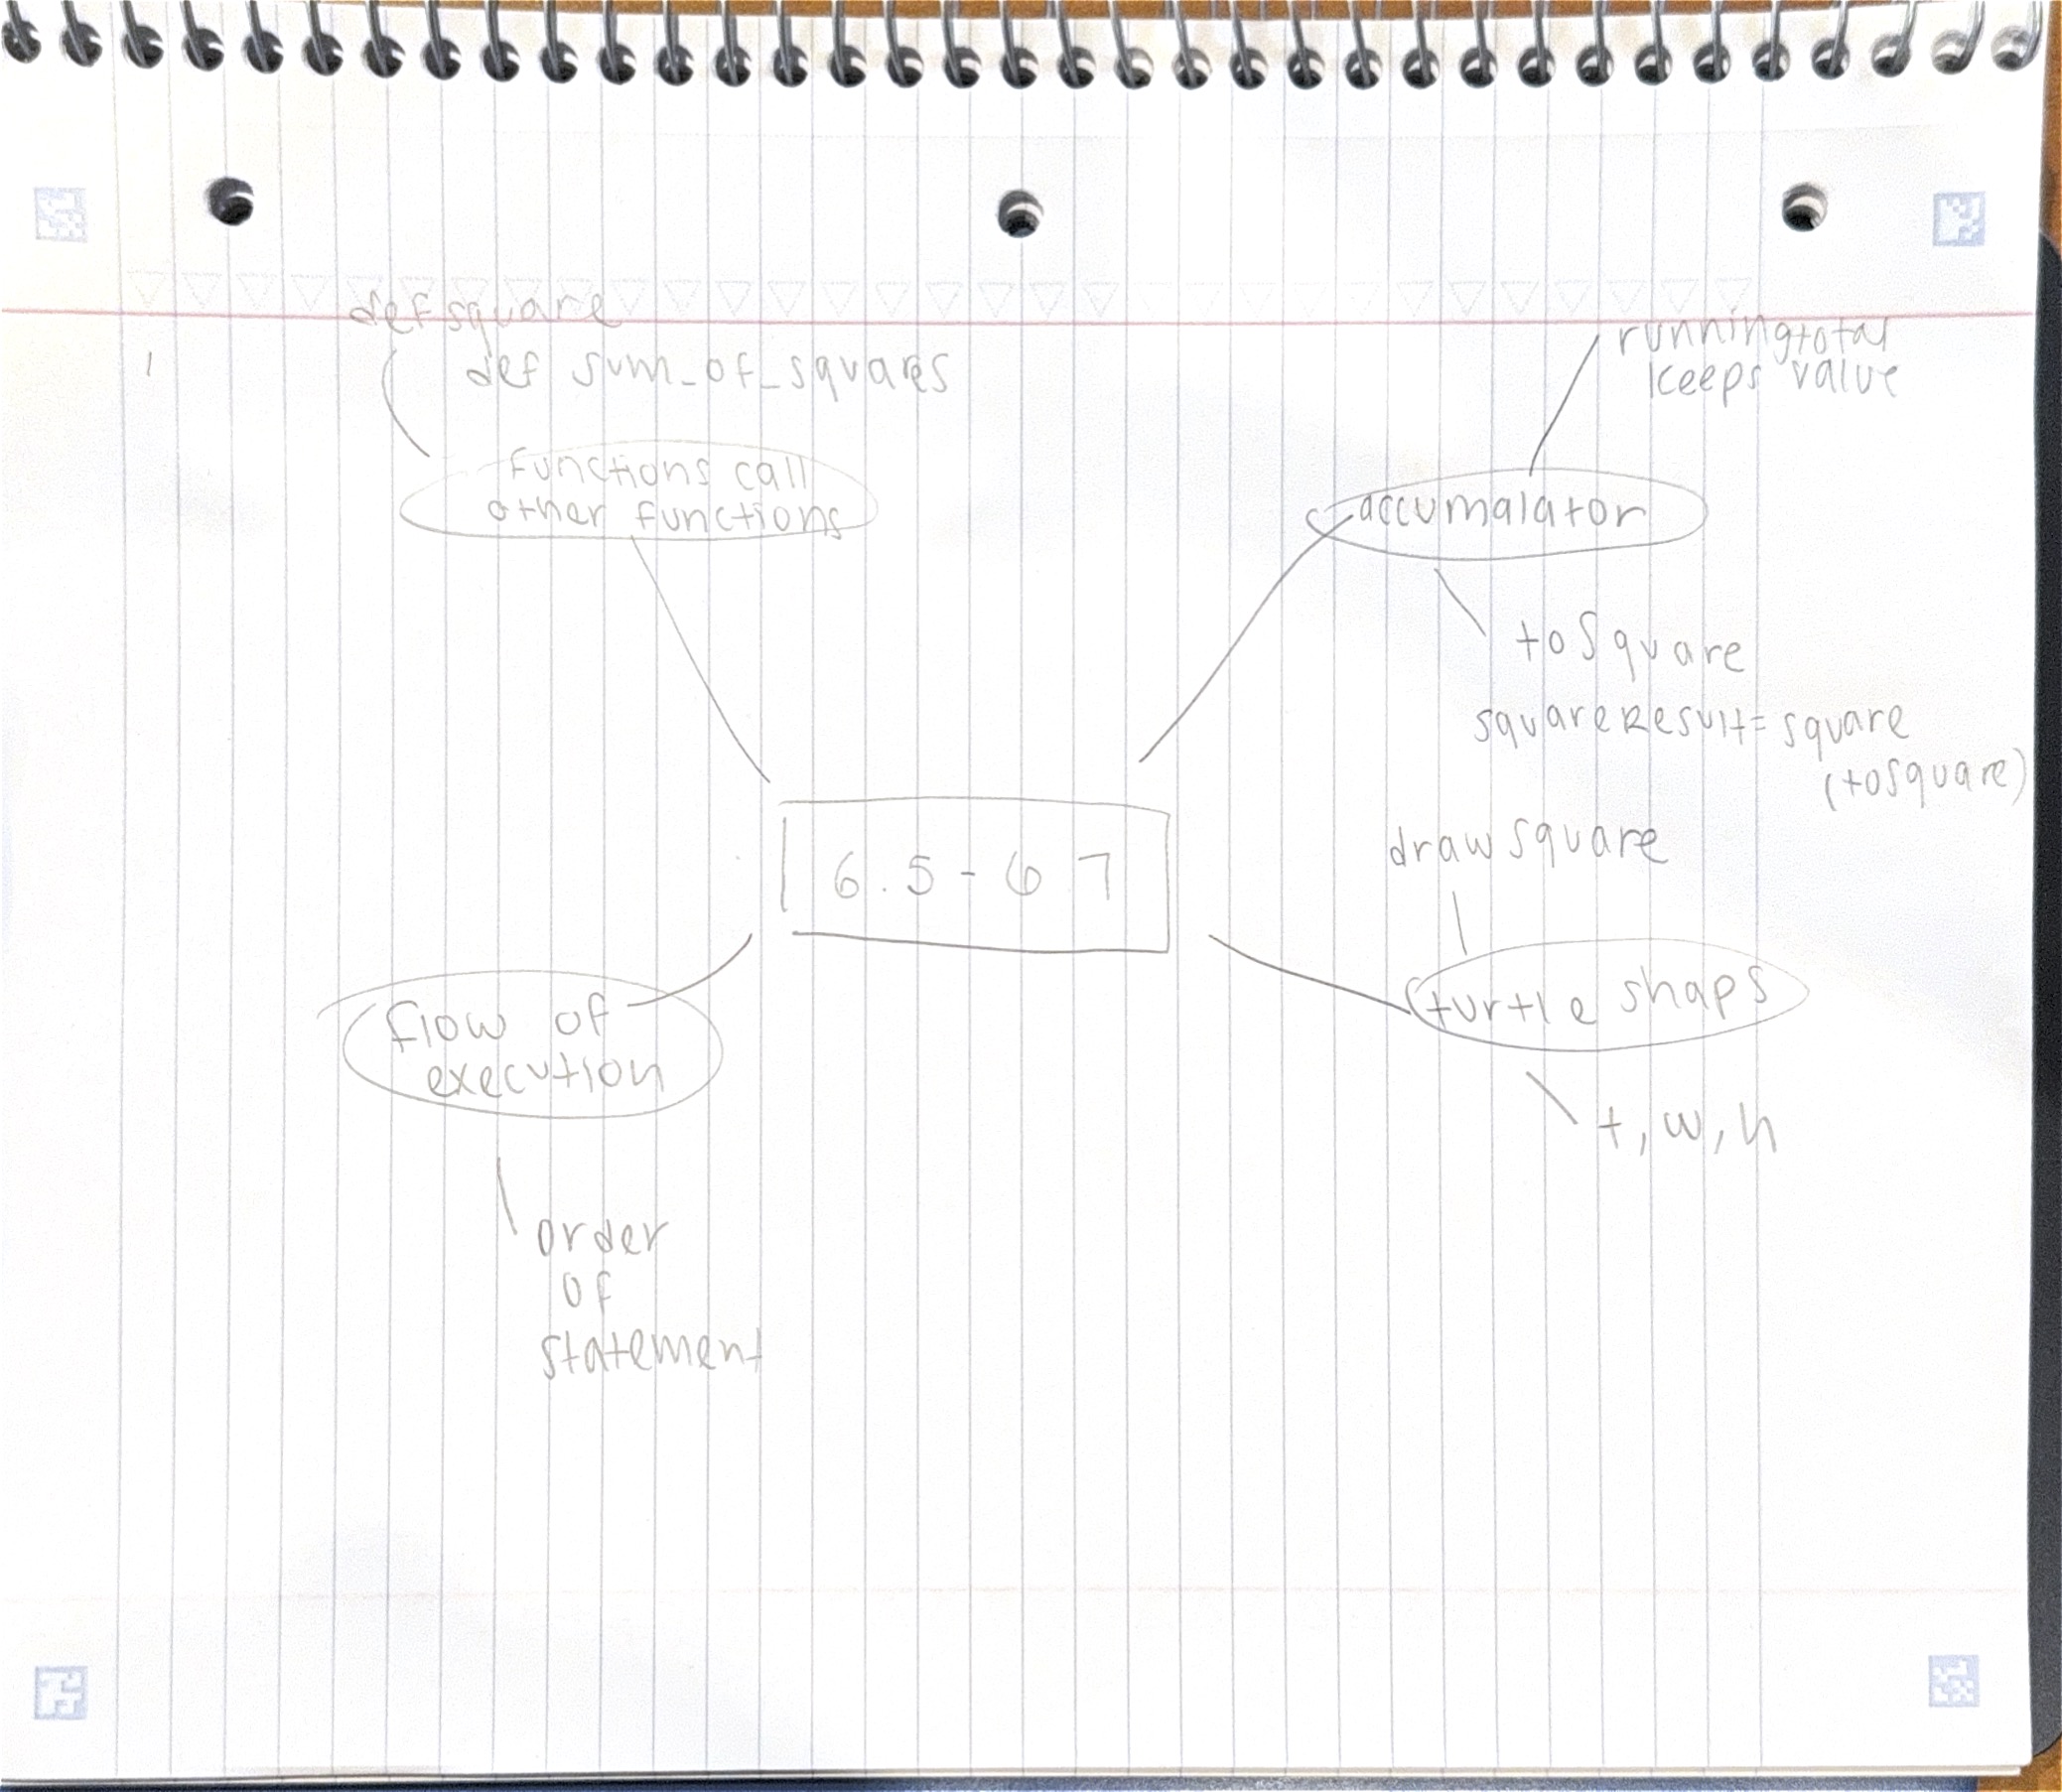 def square
def sum_of_squares
Functions call
other functions
running total
keeps value
accumalator
toSquare
squareResult = square
(toSquare)
6.5 - 6 7
draw square
turtle shaps
t, w, h
flow of
execution
order
of
statement